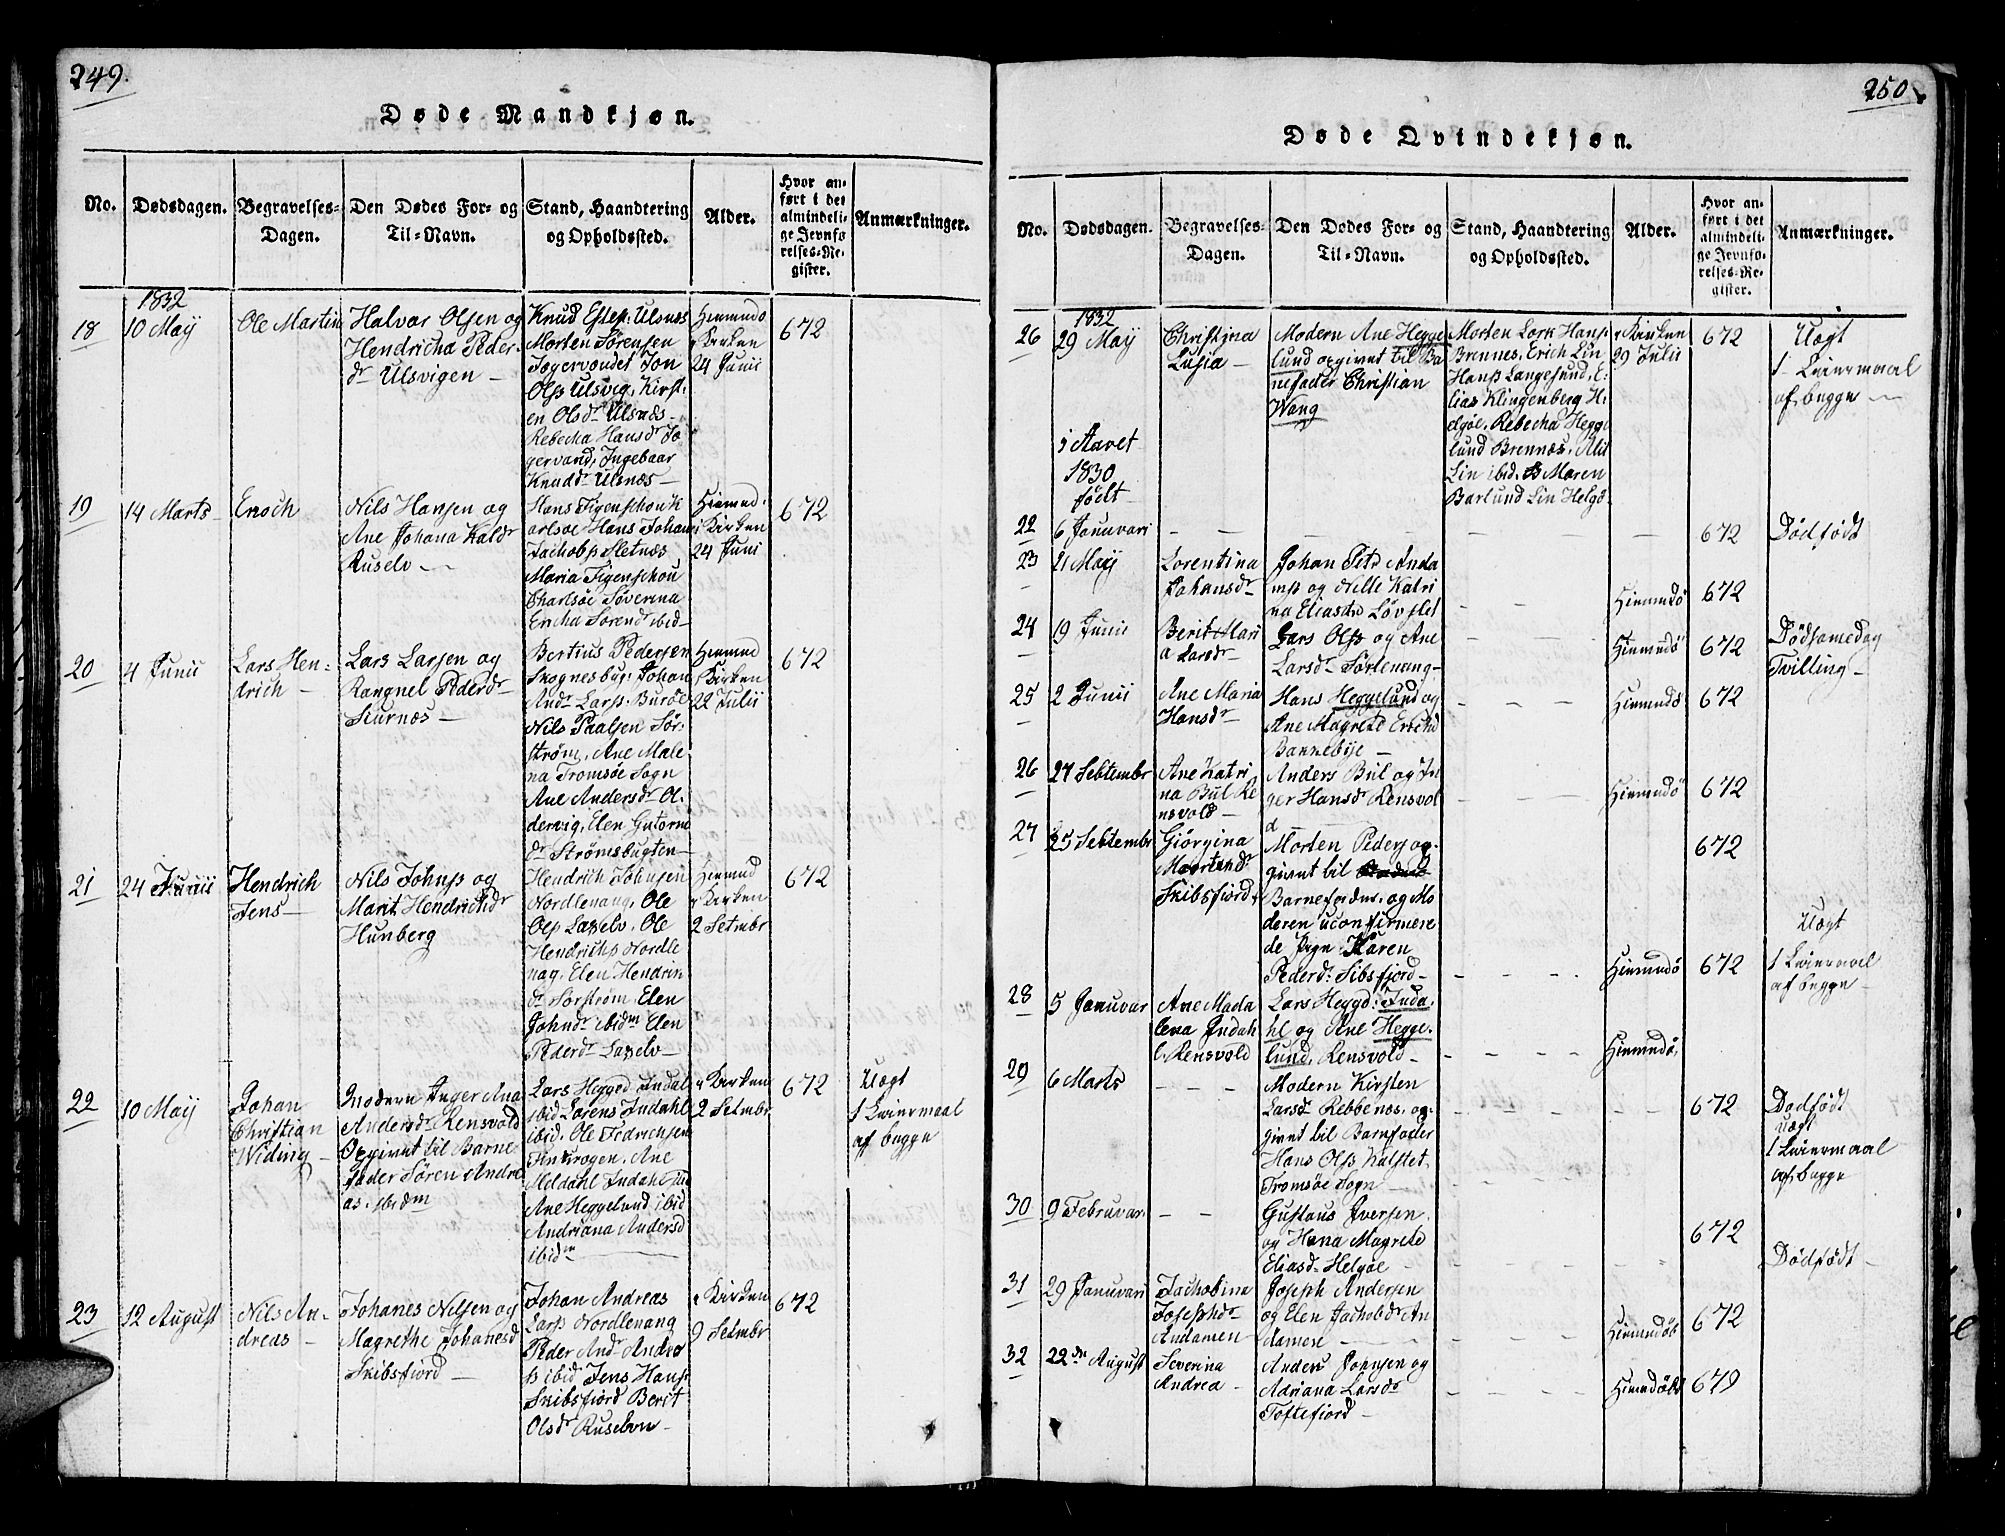 249.
Døde Mandkjøn.
No.
Dødsdagen.
Begravelses-
Dagen.
Den Dødes For- og
Til-Navn.
Stand, Haandtering
og Opholdssted.
Alder.
Hvor an-
ført i det
almindeli-
ge Jevnfø
relses-Re-
gister.
Anmærkninger.
1832
18
10 Maÿ
Ole Martin
Halvor Olsen og
Hendricha Peder-
dr Ulsvigen
Knud Estep: Ulsnæs
Morten Sørensen
Jøgervandet Jon
Olss Ulsvig, Kirst-
en Olsdr Ulsnæs
Rebecha Hansdr Jø
gervand, Ingebaar
Knudtdr Ulsnæs
Hiemmdø
Kirken
24 Junii
672
19
14 Marts
Enoch
Nils Hansen og
Ane Johana Kaldr
Ruselv
Hans Figenschou K
arlsøe Hans Johan
Jachobss Sletnæs
Maria Figenschou
Charlsøe Søverina
Ericha Sørensd ibid
Hiemmd
i Kirken
24 Juni
672
20
4 Junii
Lars Hen-
drich
Lars Larsen og
Rangnel Pederdr
Skurnæs
Bertius Pedersen
Skognesbug: Johan
Andr Larss. Burøe
Nils Paalsen Sør-
strøm, Ane Male
na Tromsøe Sogn
Ane Andersdr Ol
dervig, Elen Gutorm
dr Strømsbugten
Hiemmd
Kirken
22 Julii
672
21
24 Junii
Hendrich
Jens
Nils Johnss og
Marit Hendrichdr
Hunberg
Hendrich Johnsen
Nordlenang, Ole
Olss Lasselv, Ole
Hendrichss Nordle
nag, Elen Hendrin
dr Sørstrøm, Elen
Johndr ibidm Elen
Pederdr Lasselv
Hiemmd
Kirken
2 Setmbr
672
22
10 Maÿ
Johan
Christian
Widing
Modern Inger Ana
Andersdr Rensvold
Opgivnt til Barne
fader Søren Andre
as. ibidm
Lars Hegged Indal
ibid Lorens Indahl
ibid, Ole Fedrichsen
Finkrogen, Ane
Meldahl Indahl
Ane Heggelund ibid
Andriana Andersd
ibidm
Kirken
2 Setmbr
672
Uægt
1 Leiermaal
af begge
23
12 August
Nils An-
dreas
Johanes Nilsen og
Magrethe Johanesd
Skibsfiord
Johan Andreas
Larss Nordlenang
Peder Andr Andre
ss ibid Jens Hanss
Skibsfiord Berit
Olsdr Ruselven
Kirken
9 Setmbr
672
250
Døde Qvindekjøn.
No.
Dødsdagen.
Begravelses-
Dagen.
Den Dødes For- og
Til-Navn.
Stand, Haandtering
og Opholdssted.
Alder.
Hvor an-
ført i det
almindeli-
ge Jevnfø-
relses-Re-
gister.
Anmærkninger.
1832
26
29 Maÿ
Christina
Lusia
Modern Ane Hegge
lund opgivnt til Ba
nefader Christian
Wang
Morten Lork Hanss
Brennes, Erich Lin
Hanss Langesund, E-
lias Klingenberg H-
elgøe, Rebecha Hegge
lund Brennæs, Alit
Lin ibid. Maren
Barlund Lin Helgø
Kirken
29 Julii
672
Uægt
1 Leiermaal
af begge
i Aaret
1830
født
22
6 Januvari
672
Dødfødt
23
21 Maÿ
Lorentina
Johansdr
Johan Petr Anda
mss og Nille Katri
na Eliasdr Løvflet
Hiemmdø
672
24
19 Junii
Berit Mari
a Larsdr
Lars Olss og Ane
Larsdr Sørlenang
Hiemmdø
672
Dødsamedag
Tvilling
25
2 Junii
Ane Maria
Hansdr
Hans Heggelund og
Ane Magrete Erichd
Bannebÿe
Hiemmdø
672
26
27 Sebtembr
Ane Katri
na Bul Re
nsvold
Anders Bul og In
ger Hansdr Rensvol
d
Hiemmdø
672
27
25 Sebtembr
Giørgina
Mortensdr
Skibsfiord
Morten Peders op-
givnt til
Barnefader, og Mo
deren uconfirmere
de Pign Karen
Pederdr Sibsfjord
Hiemmdø
672
672
Uægt
1 Leiermaal
af begge
28
5 Januvar
Ane Mada
lena Indah
l. Rensvold
Lars Heggd: Inda
hl og Ane Hegge
lund, Rensvold
Hiemmdø
29
6 Marts
Modern Kirsten
Larsdr Rebbenes, op
givnt til Barnfader
Hans Olss Kalstet
Tromsøe Sogn
672
Dødfødt
Uægt
1 Leiermaal
af begge
30
9 Februvar
Gustaus Iversen
og Hana Magrete
Eliasdr Helgøe
672
Dødfødt
31
29 Januvari
Jachobina
Josephdr
Andamen
Joseph Andersen
og Elen Jachobdr An
damen
Hiemmdøb
672
32
22dn August
Severina
Andrea
Anders Johnsen og
Adriana Larsdr
Toftefiord
Hiemdøbt
679